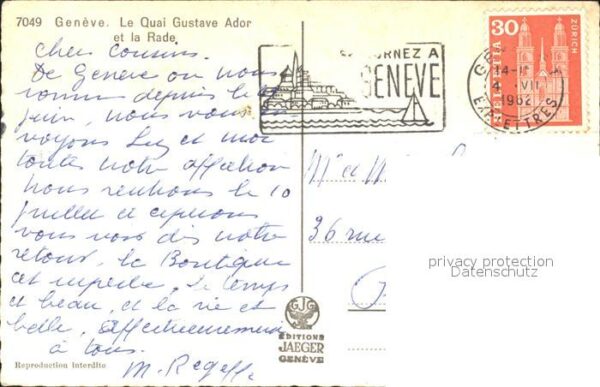 7049 Genève. Le Quai Gustave Ador
et la Rade
Chers cousins.
De Genève où nous
sommes depuis le
juin, nous vous
voyons Luz et moi
toute notre affection
nous rentrons le 10
juillet et espérons
vous voir dès notre
retour. La Boutique
est superbe, le temps
est beau, et la vie est
belle, affectueusement
à tous.
M.
Reproduction interdite
SÉJOURNEZ A
GENEVE
30
HELVETIA
ZÜRICH
14-
4 VII
1962
EXP. LETTRES
Mr et
36 rue
privacy protection
Datenschutz
EDITIONS
JAEGER
GENÈVE